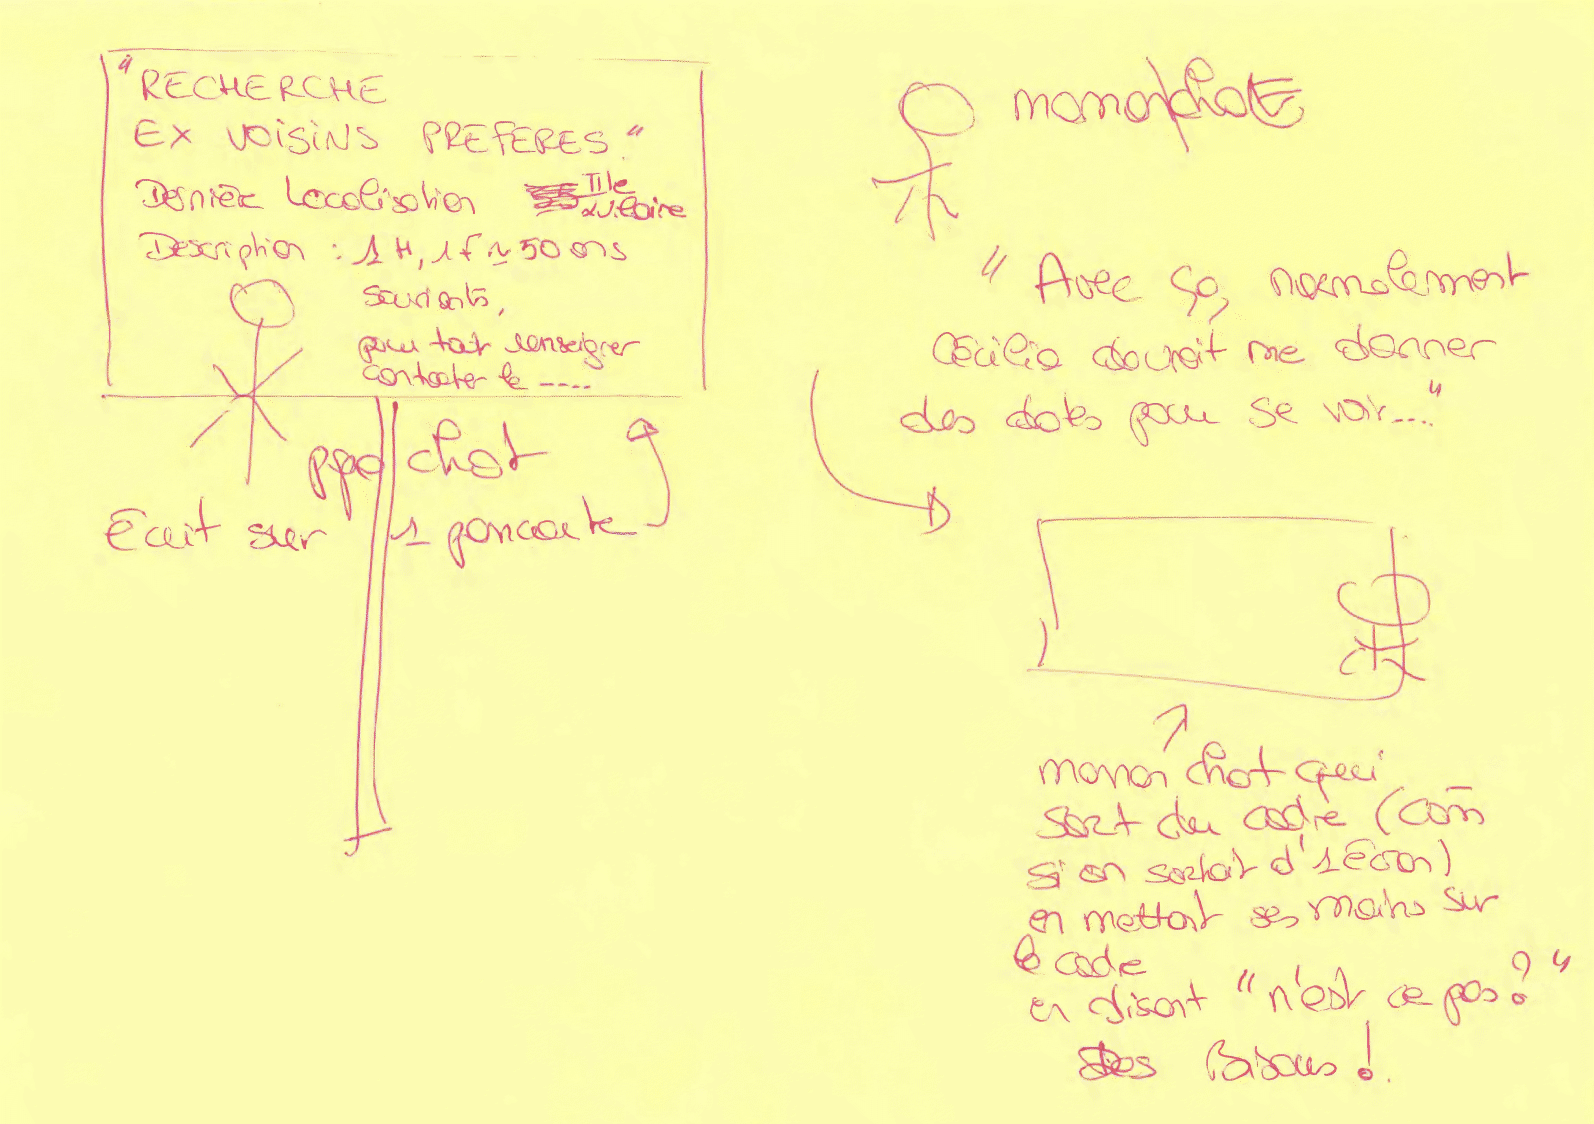 "RECHERCHE
EX VOISINS PREFERES"
Dernière Localisation
Description : 1 H, 1 f ≃ 50 ans
souriants,
pour tout renseigner
contacter le ....
papa chat
Ecrit sur 1 pancarte
maman chat
"Avec ça, normalement
Cécilia devrait me donner
des dates pour se voir...."
maman chat qui
sort du cadre (com̄
si on sortait d'1 écran)
en mettant ses mains sur
le cadre
en disant "n'est ce pas?"
Des Bisous!